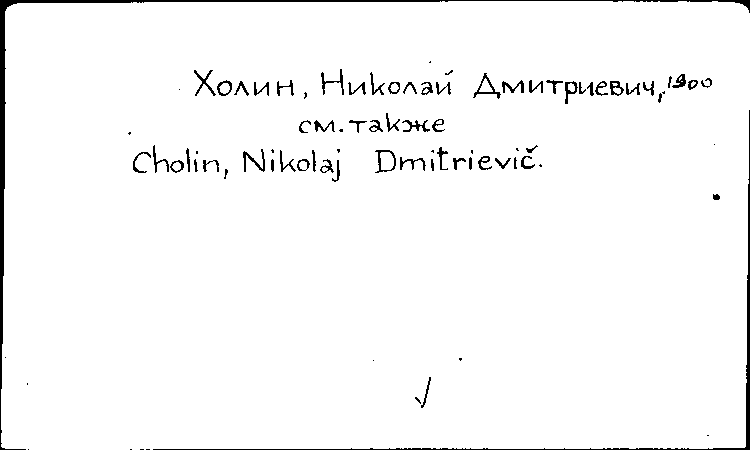 Холин, Николай Дмитриевич, 1900
см. также
Cholin, Nikolaj Dmitrievič.